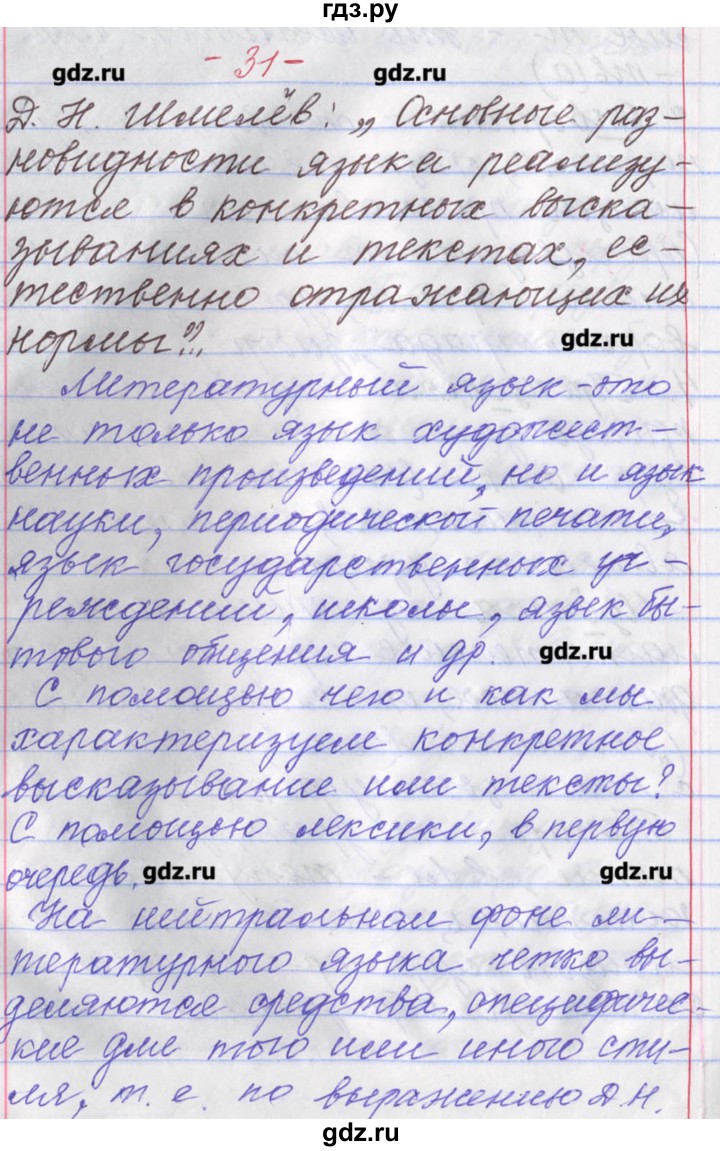 гдз.ру
- 31 -
gdz.ru gdz.ru
Д. Н. Шмелёв: „ Основные раз-
новидности языка реализу-
ются в конкретных выска-
зываниях и текстах, ес-
тественно отражающих их
нормы"...
gdz.ru
Литературный язык - это
не только язык художест-
венных произведений, но и язык
науки, периодической печати,
язык государственных уч-
реждений, школы, язык бы-
тового общения и др. gdz.ru
С помощью чего и как мы
характеризуем конкретное
высказывание или тексты?
С помощью лексики, в первую
очередь. gdz.ru gdz.ru
На нейтральном фоне ли-
тературного языка четко вы-
деляются средства, специфичес-
кие для того или иного сти-
ля, т. е. по выражению Д.Н.
gdz.ru